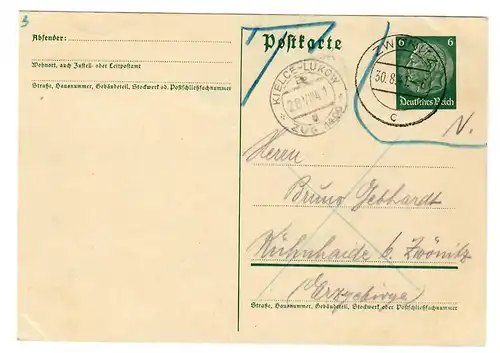 3
Absender:
Wohnort, auch Zustell- oder Leitpostamt
Straße, Hausnummer, Gebäudeteil, Stockwerk od. Postschließfachnummer
Postkarte
6 6
Deutsches Reich
ZWÖNITZ
30.8.
c
KIELCE-LUKOW
28.VIII 41
ZUG
N.
Herrn
Bruno Gebhardt
Kühnhaide b. Zwönitz
(Erzgebirge)
Straße, Hausnummer, Gebäudeteil, Stockwerk oder Postschließfachnummer